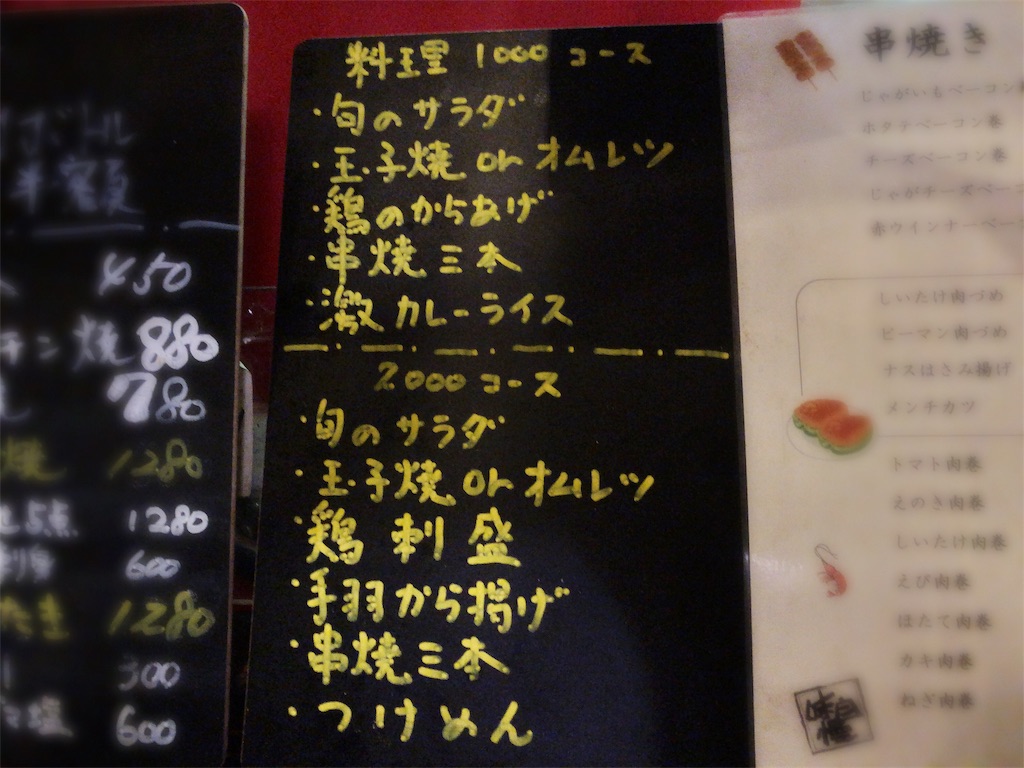 ボトル
半額
450
チン焼 880
780
焼 1280
5点 1280
刺身 600
たたき 1280
300
塩 600
料理 1000 コース
・旬のサラダ
・玉子焼 or オムレツ
・鶏のからあげ
・串焼三本
・激カレーライス
2000 コース
・旬のサラダ
・玉子焼 or オムレツ
・鶏刺盛
・手羽から揚げ
・串焼三本
・つけめん
串焼き
じゃがいもベーコン巻
ホタテベーコン巻
チーズベーコン巻
じゃがチーズベーコ
赤ウインナーベーコ
しいたけ肉づめ
ピーマン肉づめ
ナスはさみ揚げ
メンチカツ
トマト肉巻
えのき肉巻
しいたけ肉巻
えび肉巻
ほたて肉巻
カキ肉巻
ねぎ肉巻